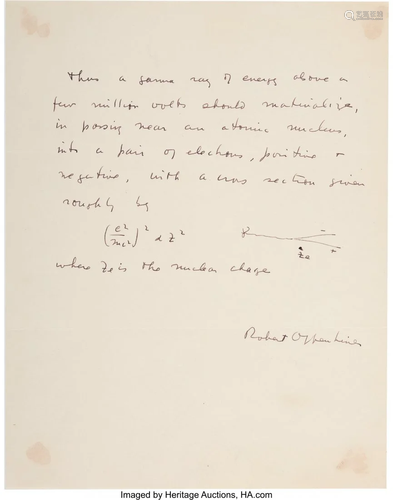 thus a gamma ray of energy above a
few million volts should materialize,
in passing near an atomic nucleus,
into a pair of electrons, positive +
negative, with a cross section given
roughly by
(e²/mc²)² α Z²
γ - +
Ze
where Ze is the nuclear charge
Robert Oppenheimer
Imaged by Heritage Auctions, HA.com